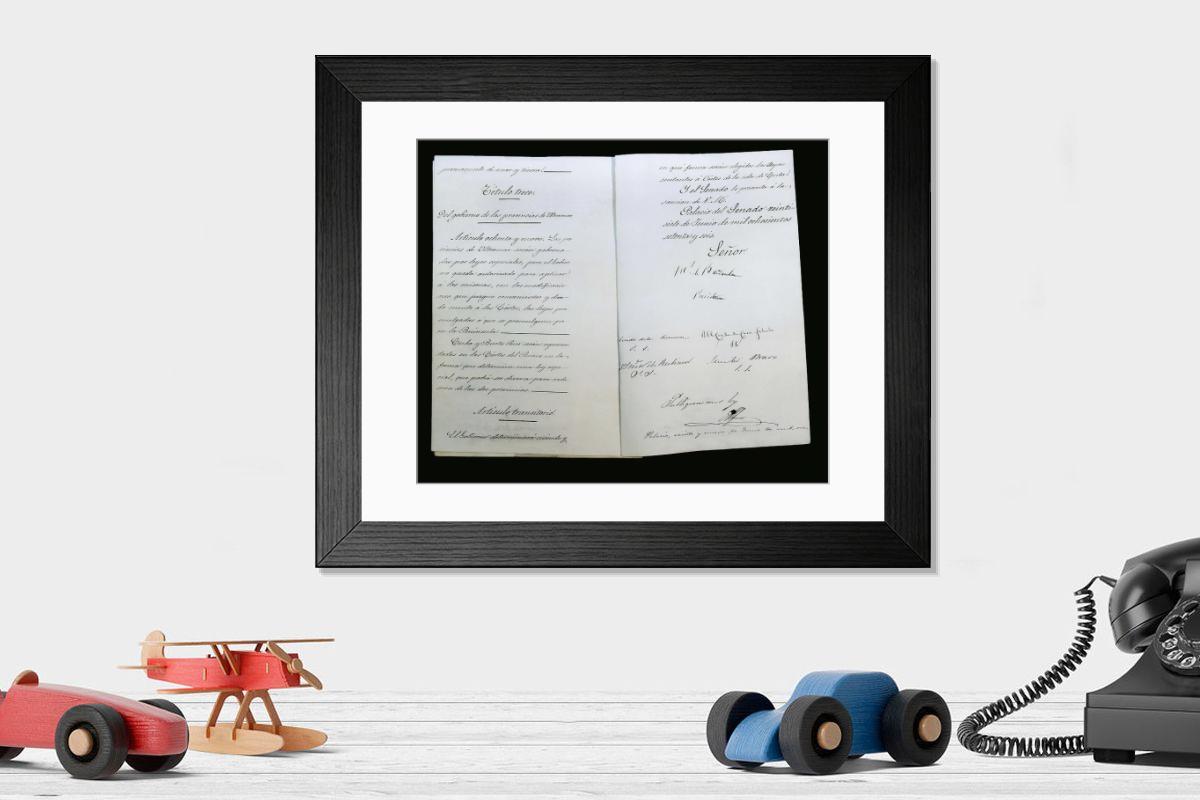 Título trece.
Del gobierno de las provincias de Ultramar
Artículo ochenta y nueve. Las pro-
vincias de Ultramar serán goberna-
das por leyes especiales; pero el Gobier-
no queda autorizado para aplicar
á las mismas, con las modificacio-
nes que juzgue convenientes y dan-
do cuenta á las Córtes, las leyes pro-
mulgadas ó que se promulguen pa-
ra la Península.
Cuba y Puerto Rico serán represen-
tadas en las Córtes del Reino en la
forma que determine una ley espe-
cial, que podrá ser diversa para cada
una de las dos provincias.
Artículo transitorio
El Gobierno determinará cuándo y
en qué forma serán elegidos los Repre-
sentantes á Córtes de la isla de Cuba.
Y el Senado lo presenta á la
sancion de V. M.
Palacio del Senado veinti-
siete de Junio de mil ochocientos
setenta y seis.
Señor
Publíquese como ley